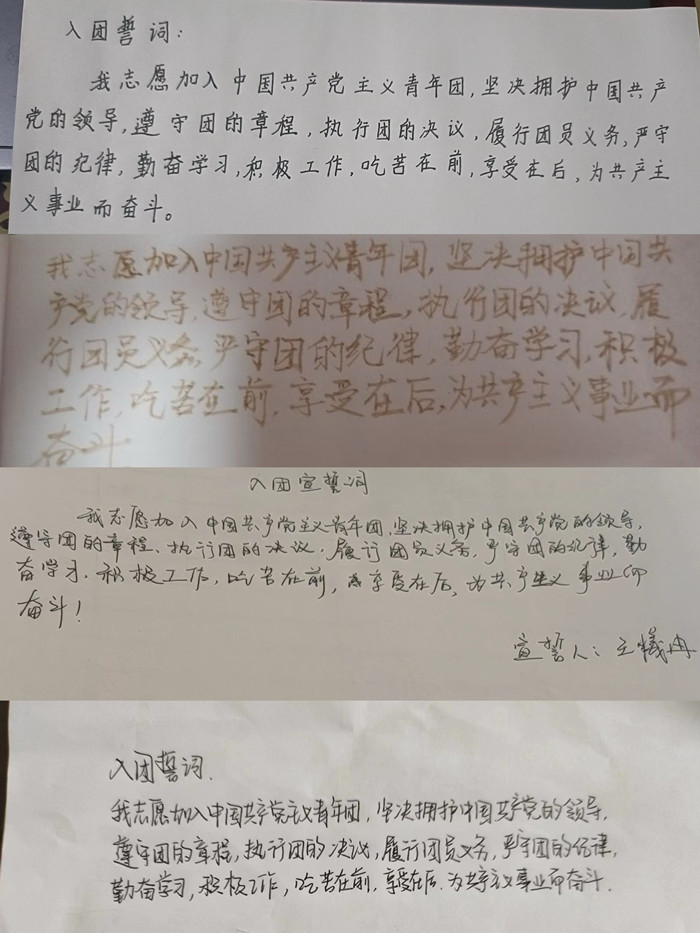 入团誓词:
我志愿加入中国共产党主义青年团,坚决拥护中国共产
党的领导,遵守团的章程,执行团的决议,履行团员义务,严守
团的纪律,勤奋学习,积极工作,吃苦在前,享受在后,为共产主
义事业而奋斗。
我志愿加入中国共产主义青年团,坚决拥护中国共
产党的领导,遵守团的章程,执行团的决议,履
行团员义务,严守团的纪律,勤奋学习,积极
工作,吃苦在前,享受在后,为共产主义事业而
奋斗
入团宣誓词
我志愿加入中国共产党主义青年团,坚决拥护中国共产党的领导,
遵守团的章程、执行团的决议,履行团员义务,严守团的纪律,勤
奋学习,积极工作,吃苦在前,享受在后,为共产主义事业而
奋斗!
宣誓人:王
入团誓词.
我志愿加入中国共产党主义青年团,坚决拥护中国共产党的领导,
遵守团的章程,执行团的决议,履行团员义务,严守团的纪律,
勤奋学习,积极工作,吃苦在前,享受在后,为共产主义事业而奋斗.